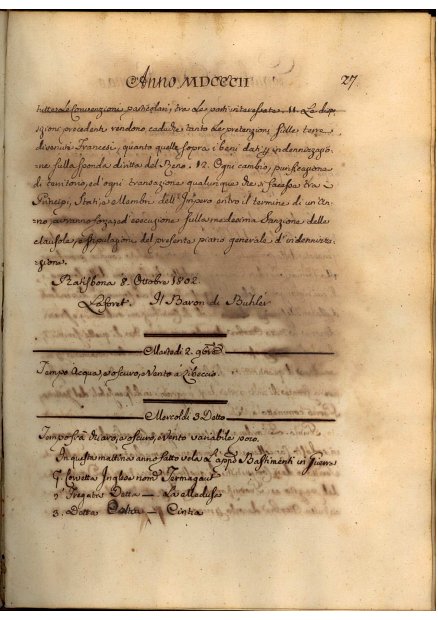 Anno MDCCCII 27.
tutte le Convenzioni particolari, tra le parti interessate. 11. Le
precedenti rendono caduche tanto le pretenzioni sulle terre
divenute Francesi, quanto quelle sopra i beni dati
sulla sponda diritta del Reno. 12. Ogni cambio, purificazione
di territorio, ed ogni transazione qualunque che si facesse tra i
Principi, Stati, e Membri dell'Impero entro il termine di un'an-
no, avranno forza, ed esecuzione sulla medesima Sanzione delle
clausole, e stipulazioni del presente piano generale d'indenniz-
zazione.
Ratisbona 8. Ottobre 1802.
Laforet. Il Baron di Buhler
Martedì 2. 9bre
Tempo Acqua, e oscuro, e Vento a Libeccio.
Mercoldì 3 Detto
Tempo frà chiaro, e oscuro, e Vento variabile poco.
In questa mattina anno fatto vela Bastimenti in Guerra
Corvetta Inglese Termagant
Fregata Detta — La Medusa
3. Detta — Cintia